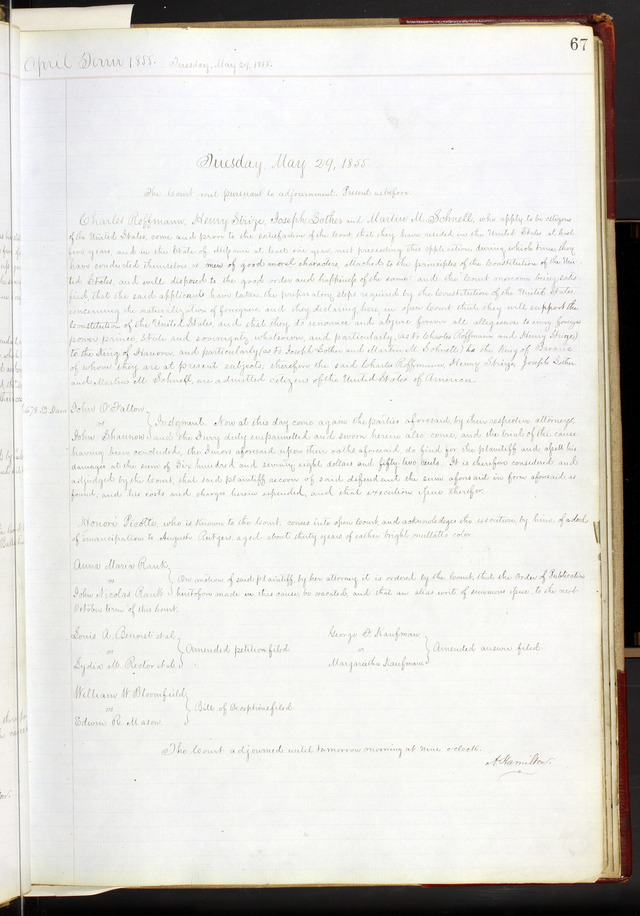 67
April Term 1855. Tuesday, May 29, 1855.
Tuesday, May 29, 1855
The Court met pursuant to adjournment. Present as before
Charles Roffmann, Henry Strize, Joseph Lother and Martin M. Schnell, who apply to be citizens
of the United States, come and prove to the satisfaction of the Court that they have resided in the United States at least
five years, and in the State of Missouri at least one year, next preceding this application, during which time they
have conducted themselves as men of good moral character, attached to the principles of the Constitution of the Uni-
ted States, and well disposed to the good order and happiness of the same: and the Court moreover being satis-
fied that the said applicants have taken the preparatory steps required by the Constitution of the United States,
concerning the naturalization of foreigners, and they declaring here in open Court that they will support the
Constitution of the United States, and that they do renounce and abjure forever all allegiance to any foreign
power, prince, State and sovereignty whatsoever, and particularly, (as to Charles Roffmann and Henry Strize)
to the King of Hanover, and particularly (as to Joseph Lother and Martin M. Schnell) to the King of Bavaria
of whom they are at present subjects, therefore the said Charles Roffmann, Henry Strize, Joseph Lother
and Martin M. Schnell, are admitted citizens of the United States of America.
John O'Fallon
vs
John Shannon
Judgment. Now at this day come again the parties aforesaid, by their respective attorneys,
and the Jury duly empannelled and sworn herein also come, and the trial of the cause
having been concluded, the Jurors aforesaid upon their oaths aforesaid, do find for the plaintiff and assess his
damages at the sum of Six hundred and seventy eight dollars and fifty two cents. It is therefore considered and
adjudged by the Court, that said plaintiff recover of said defendant the sum aforesaid in form aforesaid as
found, and his costs and charges herein expended, and that execution issue therefor.
Honoré Picotte, who is known to the Court, comes into open Court and acknowledges the execution, by him, of a deed
of emancipation to Auguste Rutgers, aged about thirty years, of rather bright mullatto color
Anna Maria Rauk
vs
John Nicolas Rauk
On motion of said plaintiff, by her attorney, it is ordered by the Court, that the Order of Publication
heretofore made in this cause, be vacated, and that an alias writ of summons issue, to the next
October term of this Court.
Louis A. Benoist et al
vs
Lydia M. Rector et al.
Amended petition filed
George D Kaufman
vs
Margaretha Kaufman
Amended answer filed.
William W Bloomfield
vs
Edwin R. Mason
Bill of Exceptions filed
The Court adjourned until tomorrow morning at nine o'clock.
A Hamilton.